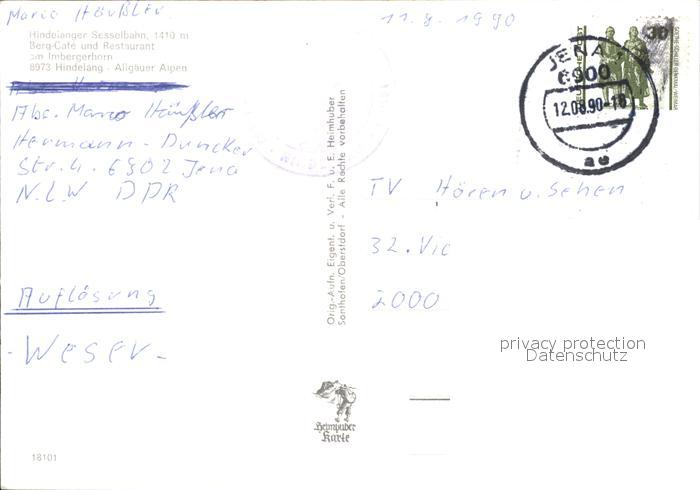 Marco Häußler
Hindelanger Sesselbahn, 1410 m
Berg-Café und Restaurant
am Imbergerhorn
8973 Hindelang - Allgäuer Alpen
Abs. Marco Häußler
Hermann-Duncker
Str. 4. 6902 Jena
N.L.W DDR
Auflösung
-Weser-
18101
Orig.-Aufn. Eigent. u. Verl. F. u. E. Heimhuber
Sonthofen/Oberstdorf - Alle Rechte vorbehalten
Heimhuber
Karte
11.8.1990
30
JENA 1
6900
12.08.90-18
ae
TV Hören u. Sehen
32. Vic
2000
privacy protection
Datenschutz